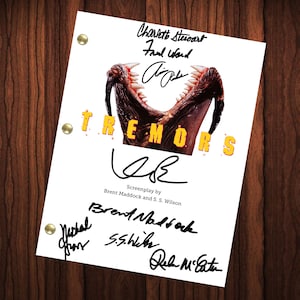 Charlotte Stewart
Fred Ward
TREMORS
Screenplay by
Brent Maddock and S. S. Wilson
Brent Maddock
S.S. Wilson
Michael Gross
Reba McEntire